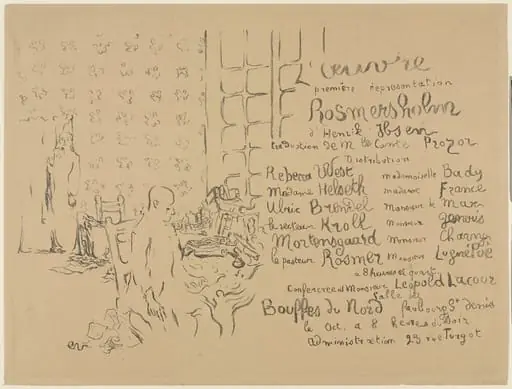 L'œuvre
première représentation
Rosmersholm
d'Henrik Ibsen
traduction de M. le Comte Prozor
Distribution
Rebecca West mademoiselle Bady
Madame Helseth madame France
Ulric Brendel Monsieur
le recteur Kroll Monsieur
Mortensgaard Monsieur
le pasteur Rosmer Monsieur Lugné Poe
à 8 heures et quart
Conférence de Monsieur Léopold Lacour
Salle des
Bouffes du Nord faubourg St Denis
le Oct. à 8 heures du Soir
Administration 23 rue Turgot
ev